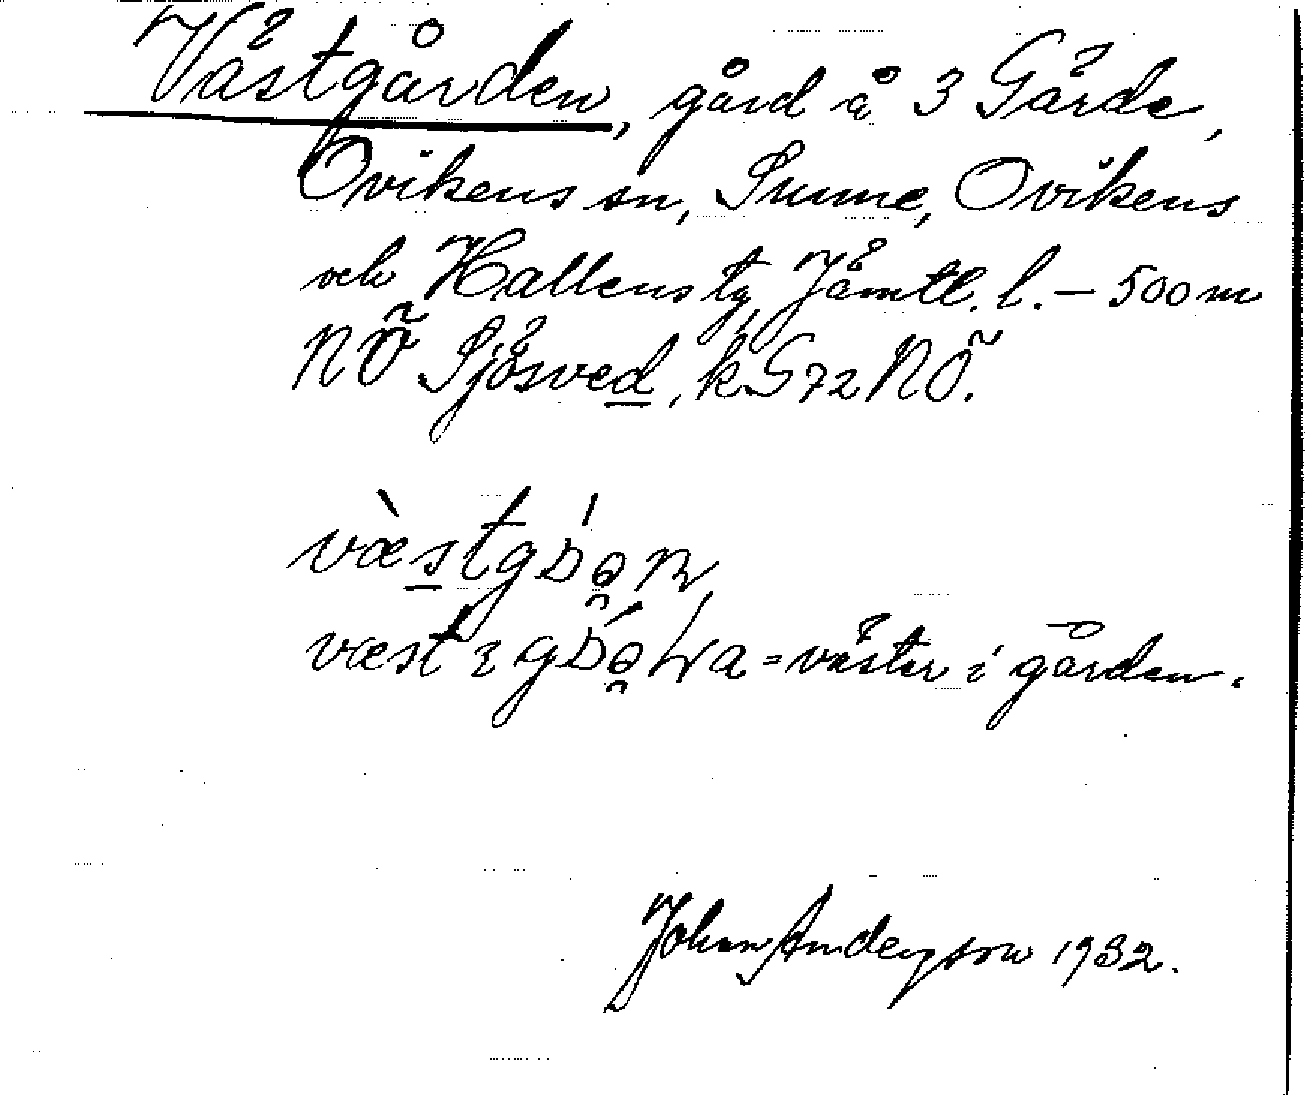 Västgården, gård å 3 Gärde,
Ovikens sn, Sunne, Ovikens
och Hallens tg, Jämtl. l. – 500 m
NÖ Sjösved, kG72NÖ.
= väster i gården.
John Andersson 1932.